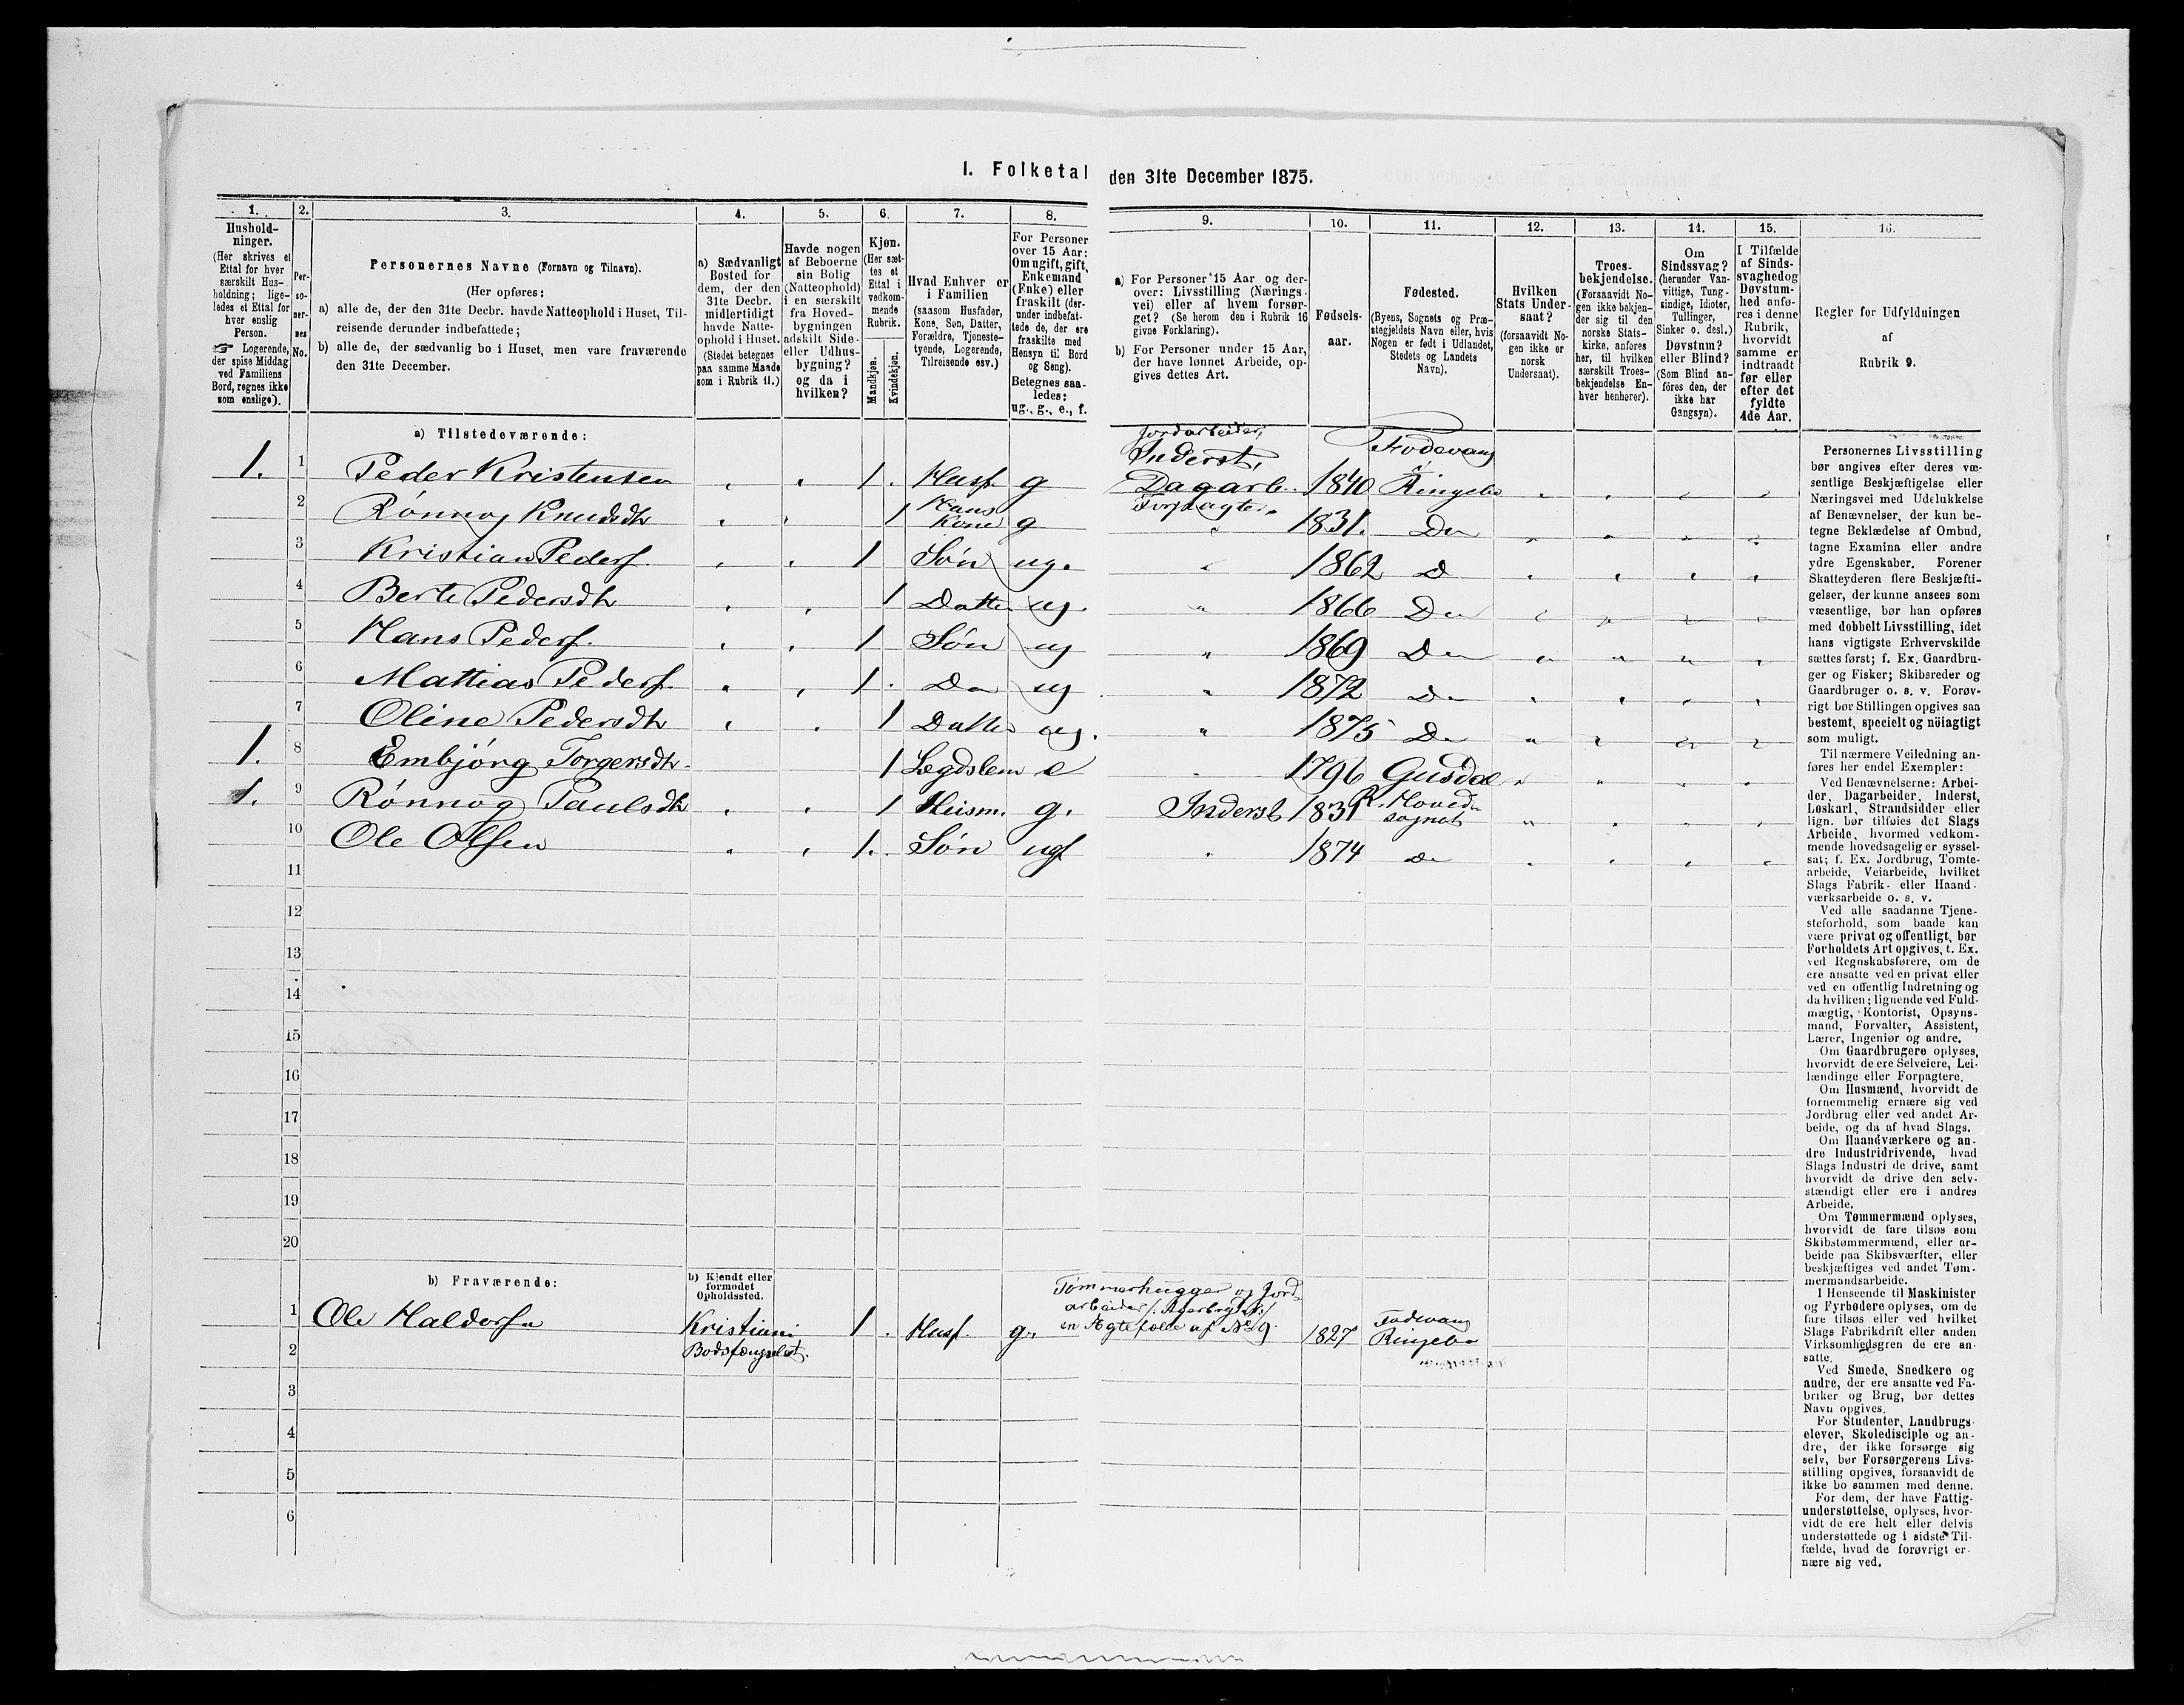 I. Folketal den 31te December 1875.
1. 2. 3. 4. 5. 6. 7. 8. 9. 10. 11. 12. 13. 14. 15. 16.
Hushold-
ninger.
(Her skrives et
Ettal for hver
særskilt Hus-
holdning; lige-
ledes et Ettal for
hver enslig
Person.
☞ Logerende,
der spise Middag
ved Familiens
Bord, regnes ikke
som enslige).
Per-
so-
ner-
nes
No.
Personernes Navne (Fornavn og Tilnavn).
(Her opføres:
a) alle de, der den 31te Decbr. havde Natteophold i Huset, Til-
reisende derunder indbefattede;
b) alle de, der sædvanlig bo i Huset, men vare fraværende
den 31te December.
a) Sædvanligt
Bosted for
dem, der den
31te Decbr.
midlertidigt
havde Natte-
ophold i Huset.
(Stedet betegnes
paa samme Maade
som i Rubrik 11.)
Havde nogen
af Beboerne
sin Bolig
(Natteophold)
i en særskilt
fra Hoved-
bygningen
adskilt Side-
eller Udhus-
bygning?
og da i
hvilken?
Kjøn.
(Her sæt-
tes et
Ettal i
vedkom-
mende
Rubrik.
Mandkjøn.
Kvindekjøn.
Hvad Enhver er
i Familien
(saasom Husfader,
Kone, Søn, Datter,
Forældre, Tjeneste-
tyende, Logerende,
Tilreisende osv.)
For Personer
over 15 Aar:
Om ugift, gift,
Enkemand
(Enke) eller
fraskilt (der-
under indbefat-
tede de, der ere
fraskilte med
Hensyn til Bord
og Seng).
Betegnes saa-
ledes:
ug., g., e., f.
a) For Personer 15 Aar og der-
over: Livsstilling (Nærings-
vei) eller af hvem forsør-
get? (Se herom den i Rubrik 16
givne Forklaring).
b) For Personer under 15 Aar,
der have lønnet Arbeide, op-
gives dettes Art.
Fødsels-
aar.
Fødested.
(Byens, Sognets og Præ-
stegjeldets Navn eller, hvis
Nogen er født i Udlandet,
Stedets og Landets
Navn).
Hvilken
Stats Under-
saat?
(forsaavidt No-
gen ikke er
norsk
Undersaat).
Troes-
bekjendelse.
(Forsaavidt No-
gen ikke bekjen-
der sig til den
norske Stats-
kirke, anføres
her, til hvilken
særskilt Troes-
bekjendelse En-
hver henhører).
Om
Sindssvag?
(herunder Van-
vittige, Tung-
sindige, Idioter,
Tullinger,
Sinker o. desl.)
Døvstum?
eller Blind?
(Som Blind an-
føres den, der
ikke har
Gangsyn).
I Tilfælde
af Sinds-
svaghed og
Døvstum-
hed anfø-
res i denne
Rubrik,
hvorvidt
samme er
indtraadt
før eller
efter det
fyldte
4de Aar.
Regler for Udfyldningen
af
Rubrik 9.
a) Tilstedeværende:
Jordarbeider,
Inderst, Fodevang
1. 1 Peder Kristensen 1. Husf. g Dagarb. 1840 i Ringebo
2 Rønnog Knudsdtr 1 Hans Kone g Forpagter 1831. Do
3 Kristian Peders. 1 Søn ug. 1862 D
4 Berte Pedersdtr 1 Datter ug. 1866 Do
5 Hans Peders. 1 Søn ug 1869 Do
6 Mattias Peders. 1. Do ug 1872 Do
7 Oline Pedersdtr 1 Datter ug. 1875 Do
1. 8 Embjørg Torgersdtr. 1 Lægdslem e 1796 Gusdal
1. 9 Rønnog Paulsdtr 1 Huusm. g. Inderst 1831 R. Hoved-
sognet
10 Ole Olsen 1. Søn ug 1874 do
11
12
13
14
15
16
17
18
19
20
b) Fraværende:
b) Kjendt eller
formodet
Opholdssted.
Tømmerhugger og Jord-
arbeider
1 Ole Haldorsen Kristiani 1. Husf. g. en Ægtefolde af No 9. 1827 Fodevang
Ringebo
2 Bodsfængslet.
3
4
5
6
Personernes Livsstilling
bør angives efter deres væ-
sentlige Beskjæftigelse eller
Næringsvei med Udelukkelse
af Benævnelser, der kun be-
tegne Beklædelse af Ombud,
tagne Examina eller andre
ydre Egenskaber. Forener
Skatteyderen flere Beskjæfti-
gelser, der kunne ansees som
væsentlige, bør han opføres
med dobbelt Livsstilling, idet
hans vigtigste Erhvervskilde
sættes først; f. Ex. Gaardbru-
ger og Fisker; Skibsreder og
Gaardbruger o. s. v. Forøv-
rigt bør Stillingen opgives saa
bestemt, specielt og nöiagtigt
som muligt.
Til nærmere Veiledning an-
føres her endel Exempler:
Ved Benævnelserne: Arbei-
der, Dagarbeider, Inderst,
Løskarl, Strandsidder eller
lign. bør tilføies det Slags
Arbeide, hvormed vedkom-
mende hovedsagelig er syssel-
sat; f. Ex. Jordbrug, Tomte-
arbeide, Veiarbeide, hvilket
Slags Fabrik- eller Haand-
værksarbeide o. s. v.
Ved alle saadanne Tjene-
steforhold, som baade kan
være privat og offentligt, bør
Forholdets Art opgives, t. Ex.
ved Regnskabsførere, om de
ere ansatte ved en privat eller
ved en offentlig Indretning og
da hvilken; lignende ved Fuld-
mægtig, Kontorist, Opsyns-
mand, Forvalter, Assistent,
Lærer, Ingeniør og andre.
Om Gaardbrugere oplyses,
hvorvidt de ere Selveiere, Lei-
lændinge eller Forpagtere.
Om Husmænd, hvorvidt de
fornemmelig ernære sig ved
Jordbrug eller ved andet Ar-
beide, og da af hvad Slags.
Om Haandværkere og an-
dre Industridrivende, hvad
Slags Industri de drive, samt
hvorvidt de drive den selv-
stændigt eller ere i andres
Arbeide.
Om Tømmermænd oplyses,
hvorvidt de fare tilsøs som
Skibstømmermænd, eller ar-
beide paa Skibsværfter, eller
beskjæftiges ved andet Tøm-
mermandsarbeide.
I Henseende til Maskinister
og Fyrbødere oplyses, om de
fare tilsøs eller ved hvilket
Slags Fabrikdrift eller anden
Virksomhedsgren de ere an-
satte.
Ved Smede, Snedkere og
andre, der ere ansatte ved Fa-
briker og Brug, bør dettes
Navn opgives.
For Studenter, Landbrugs-
elever, Skoledisciple og an-
dre, der ikke forsørge sig
selv, bør Forsørgerens Livs-
stilling opgives, forsaavidt de
ikke bo sammen med denne.
For dem, der have Fattig-
understøttelse, oplyses, hvor-
vidt de ere helt eller delvis
understøttede og i sidste Til-
fælde, hvad de forøvrigt er-
nære sig ved.